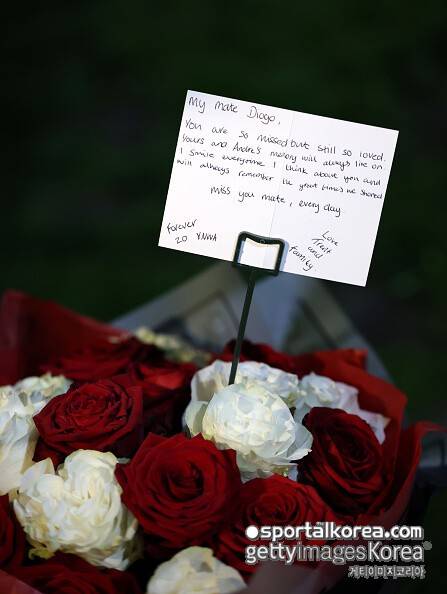 My mate Diogo,
You are so missed but still so loved.
Yours and Andre's memory will always live on.
I smile everytime I think about you and
will always remember the great times we shared
miss you mate, every day
Forever
20 YNWA
Love
Trent
and
family.
sportalkorea.com
gettyimagesKorea
게티이미지코리아